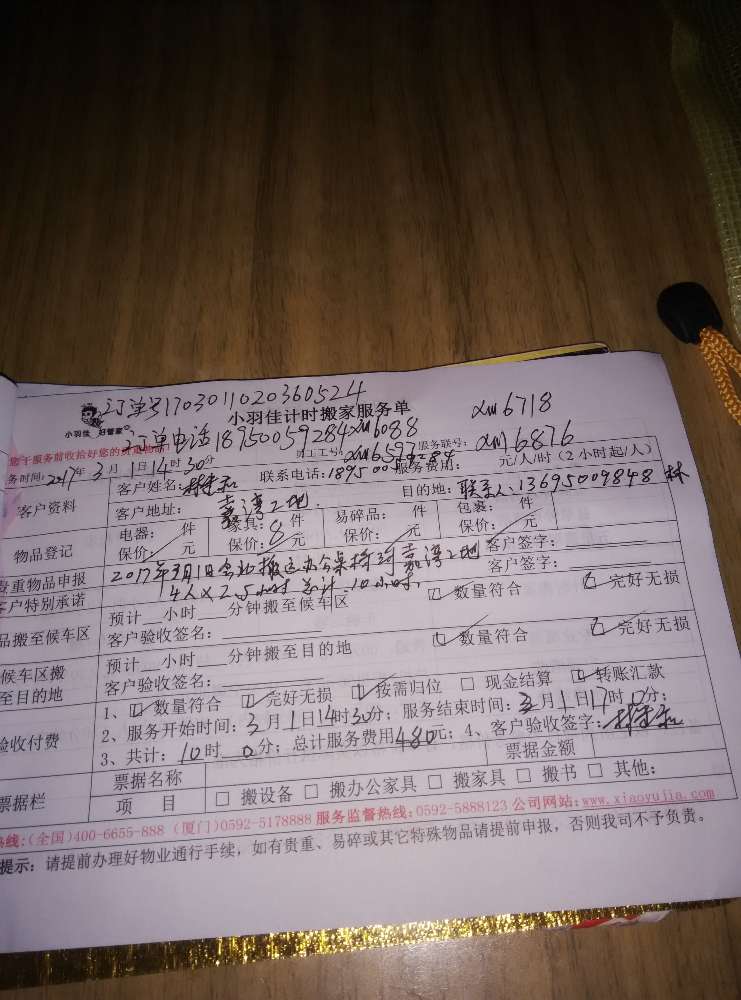 订单号1703011020360524
小羽佳 好管家
小羽佳计时搬家服务单
xm6718
订单电话18950059284 xm6088
员工工号: xm6597 服务联号: xm6876
务时间: 2017年3月1日14时30分
联系电话: 服务费用: 元/人/时 (2小时起/人)
客户资料
客户姓名:
客户地址: 嘉湾工地
目的地: 联系人:13695009848 林
物品登记
电器: 件 家具: 件 易碎品: 件 包装: 件
保价: 元 保价:8元 保价: 元 保价: 元
贵重物品申报
2017年3月1日 搬运办公桌椅到嘉湾工地
客户签字:
客户特别承诺
4人×2.5小时 总计:10小时.
客户签字:
品搬至候车区
预计__小时___分钟搬至候车区
☑ 数量符合 ☑ 完好无损
客户验收签名:
候车区搬
至目的地
预计__小时___分钟搬至目的地
☑ 数量符合 ☑ 完好无损
客户验收签名:
验收付费
1、☑ 数量符合 ☑ 完好无损 ☑ 按需归位 □ 现金结算 ☑ 转账汇款
2、服务开始时间: 3月1日14时30分; 服务结束时间: 3月1日17时0分;
3、共计: 10时 0分; 总计服务费用480元; 4、客户验收签字:
票据栏
票据名称
票据金额
项 目
□ 搬设备 □ 搬办公家具 □ 搬家具 □ 搬书 □ 其他:
热线:(全国)400-6655-888 (厦门)0592-5178888 服务监督热线:0592-5888123 公司网站:www.xiaoyujia.com
提示: 请提前办理好物业通行手续, 如有贵重、易碎或其它特殊物品请提前申报, 否则我司不予负责。